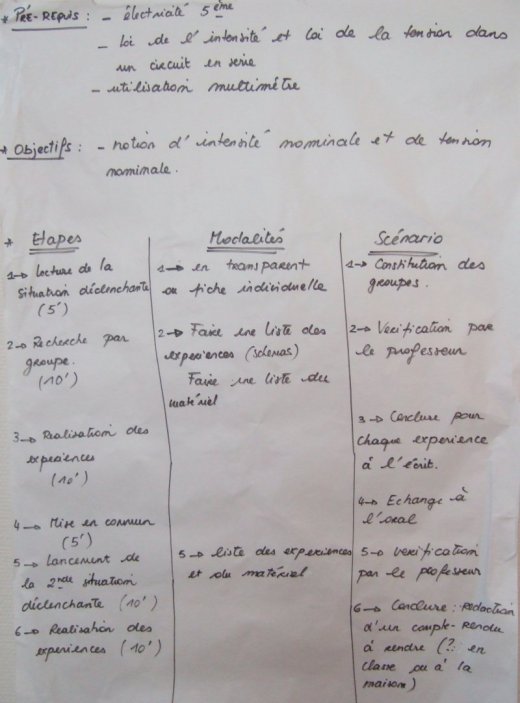 * PRÉ-REQUIS : - électricité 5ème
- loi de l'intensité et loi de la tension dans
un circuit en serie
- utilisation multimètre
* Objectifs : - notion d'intensité nominale et de tension
nominale.
* Etapes
1→ Lecture de la
situation déclenchante
(5')
2→ Recherche par
groupe.
(10')
3→ Realisation des
expériences
(10')
4→ Mise en commun
(5')
5→ Lancement de
la 2nde situation
déclenchante (10')
6→ Realisation des
experiences (10')
Modalités
1→ en transparent
ou fiche individuelle
2→ Faire une liste des
experiences (schemas)
Faire une liste du
matériel
5→ liste des experiences
et du matériel
Scénario
1→ Constitution des
groupes.
2→ Vérification par
le professeur
3→ Conclure pour
chaque experience
à l'écrit.
4→ Echange à
l'oral
5→ vérification
par le professeur
6→ Conclure : redaction
d'un compte-rendu
à rendre (? : en
classe ou à la
maison)